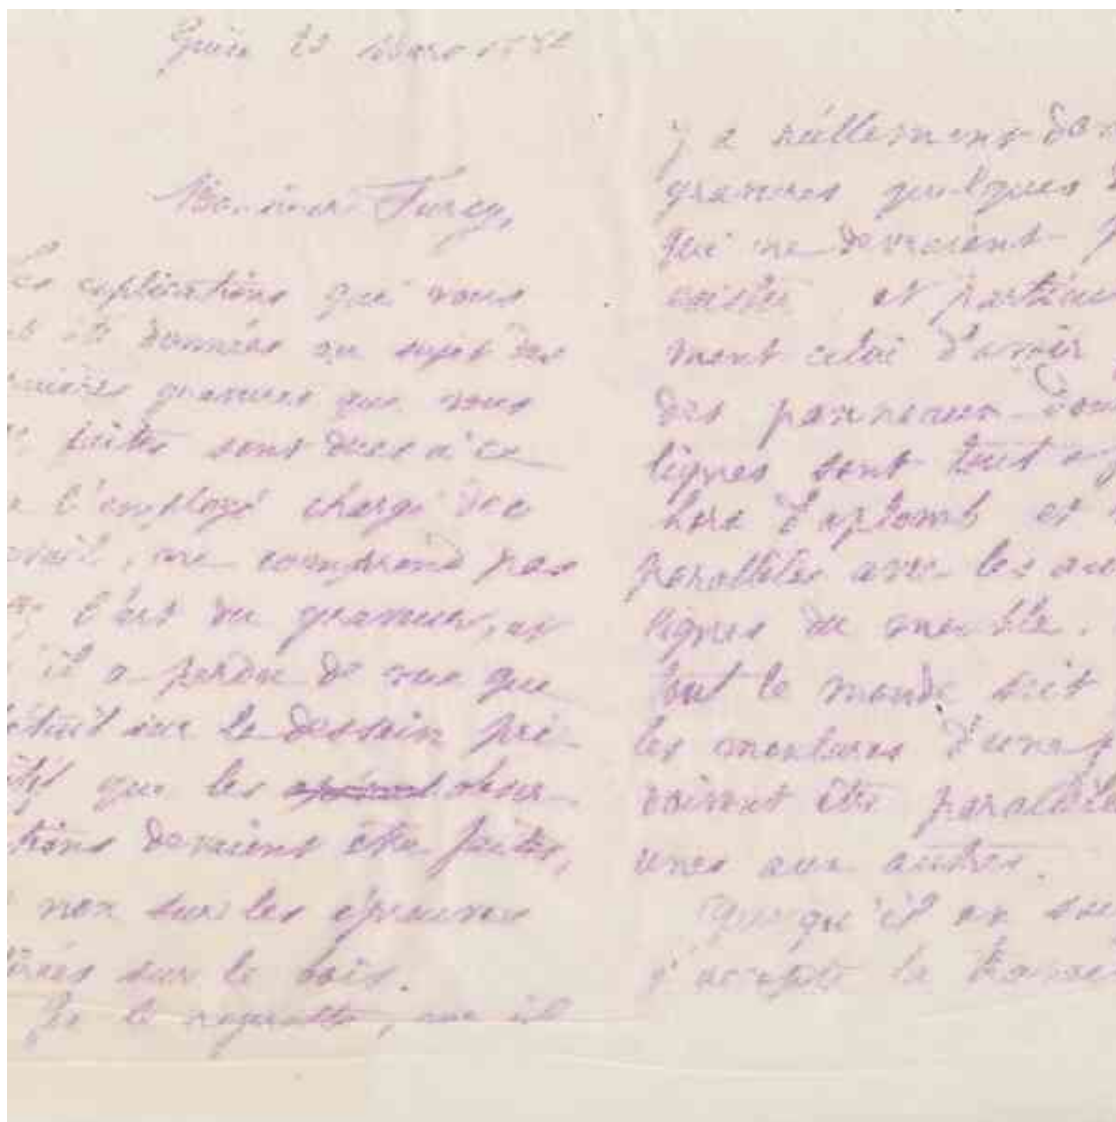 23 Mars
Monsieur Furcy,
Les explications qui vous
été données au sujet des
gravures que vous
faites sont dues à ce
l'employé chargé de ce
, ne comprend pas
l'art du graveur, et
il a perdu de vue que
sur le dessin pri-
que les obser-
tions devaient être faites,
non sur les épreuves
sur le bois.
Je le regrette, car il
y a réellement dans
gravures quelques
qui ne devraient p
exister et particu
ment celui d'avoir
des panneaux don
lignes sont tout
hors d'aplomb et
parallèles avec les au
lignes du meuble.
tout le monde sait
les moulures d'une p
doivent être parallèle
unes aux autres.
Quoiqu'il en soi
j'accepte la